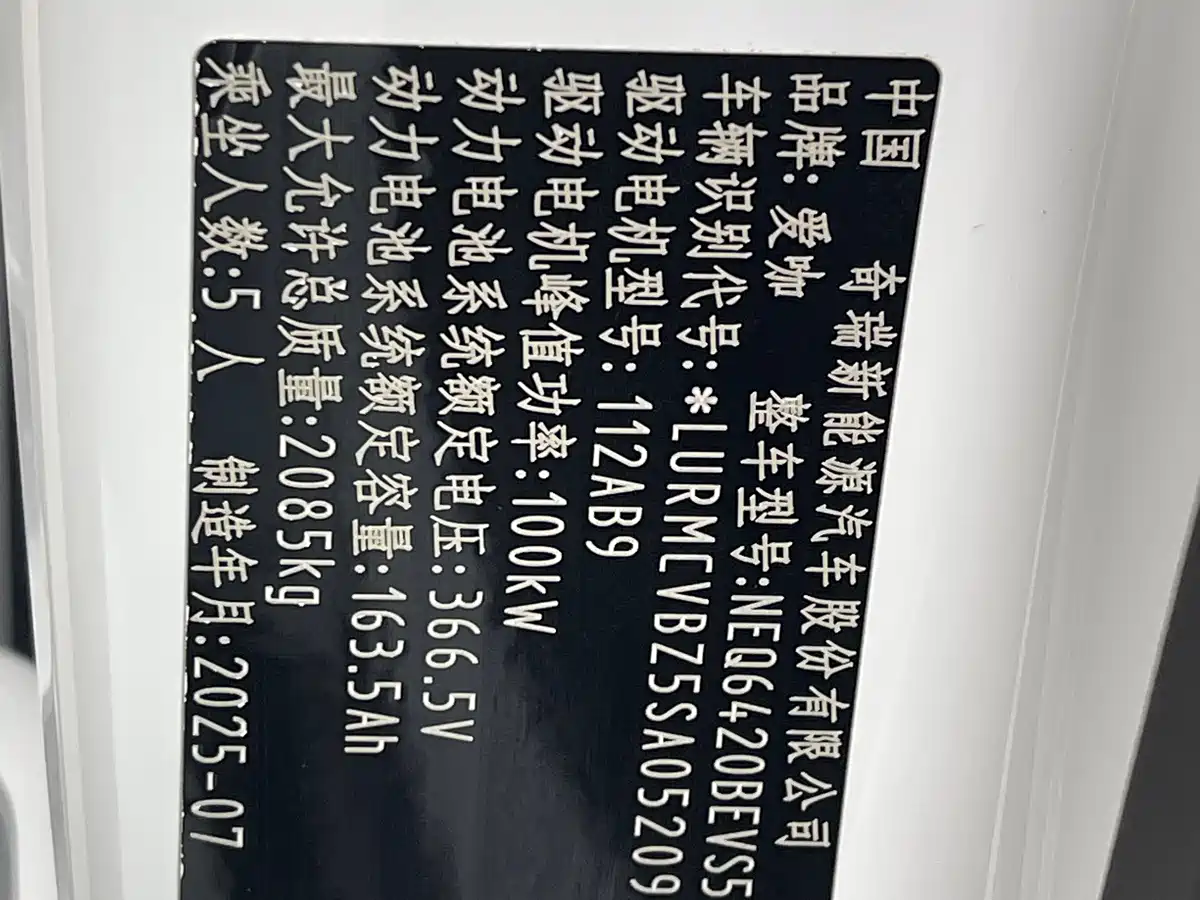 中国 奇瑞新能源汽车股份有限公司
品牌:爱咖 整车型号:NEQ6420BEVS5
车辆识别代号:*LURMCVBZ5SA05209
驱动电机型号:112AB9
驱动电机峰值功率:100kW
动力电池系统额定电压:366.5V
动力电池系统额定容量:163.5Ah
最大允许总质量:2085kg
乘坐人数:5 人 制造年月:2025-07